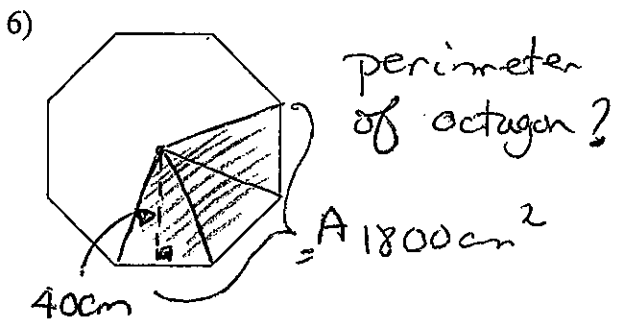 6)
perimeter
of octagon?
= A 1800cm²
40cm